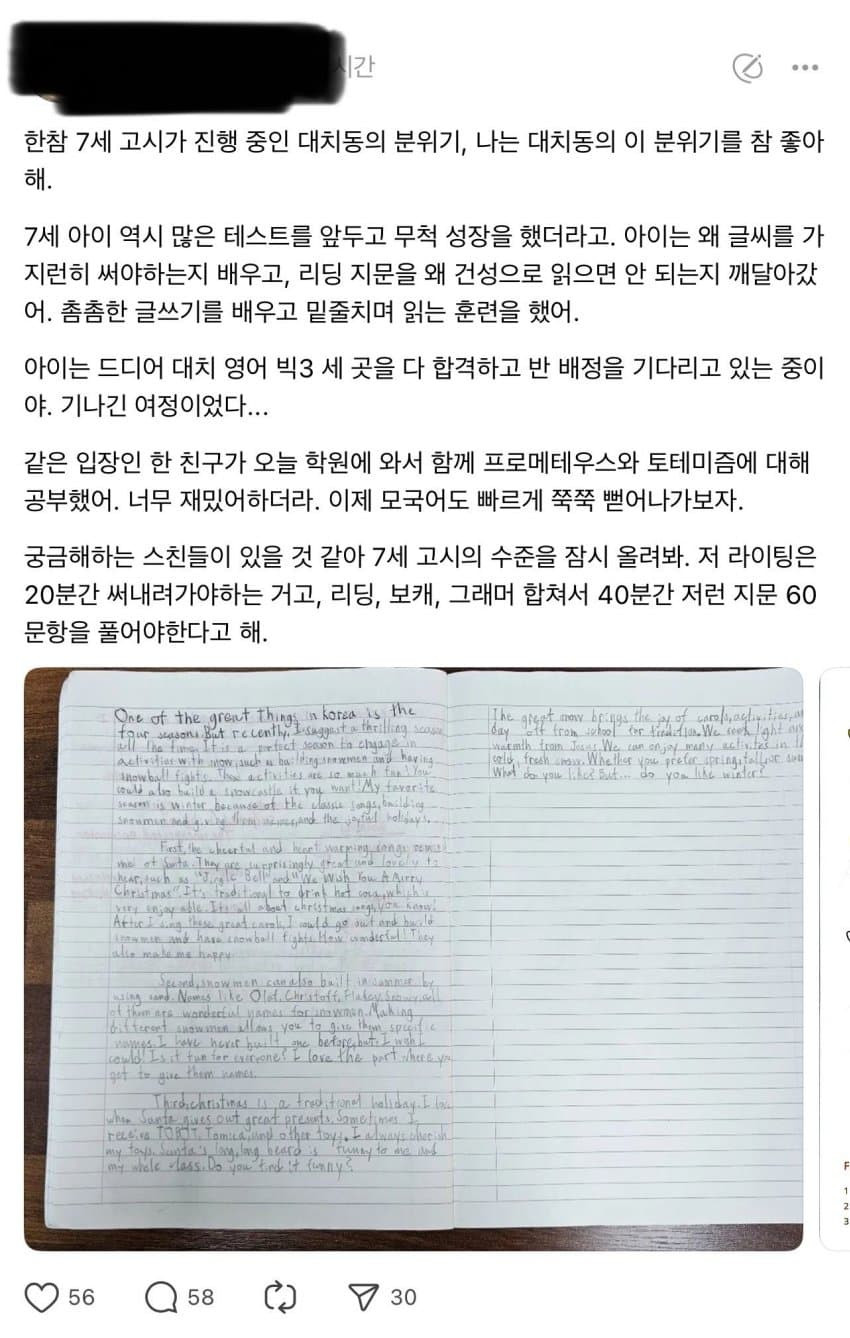 시간
한참 7세 고시가 진행 중인 대치동의 분위기, 나는 대치동의 이 분위기를 참 좋아
해.
7세 아이 역시 많은 테스트를 앞두고 무척 성장을 했더라고. 아이는 왜 글씨를 가
지런히 써야하는지 배우고, 리딩 지문을 왜 건성으로 읽으면 안 되는지 깨달아갔
어. 촘촘한 글쓰기를 배우고 밑줄치며 읽는 훈련을 했어.
아이는 드디어 대치 영어 빅3 세 곳을 다 합격하고 반 배정을 기다리고 있는 중이
야. 기나긴 여정이었다...
같은 입장인 한 친구가 오늘 학원에 와서 함께 프로메테우스와 토테미즘에 대해
공부했어. 너무 재밌어하더라. 이제 모국어도 빠르게 쭉쭉 뻗어나가보자.
궁금해하는 스친들이 있을 것 같아 7세 고시의 수준을 잠시 올려봐. 저 라이팅은
20분간 써내려가야하는 거고, 리딩, 보캐, 그래머 합쳐서 40분간 저런 지문 60
문항을 풀어야한다고 해.
One of the great things in korea is the
four seasons. But recently, I suggest a thrilling season
all the time. It is a perfect season to engage in
activities with snow, such as building snowmen and having
snowball fights. These activities are so much fun! You
could also build a snowcastle if you want! My favorite
season is winter because of the classic songs, building
snowmen and giving them names, and the joyful holidays.
First, the cheerful and heart warming songs remind
me of Santa. They are surprisingly great and lovely to
hear, such as "Jingle Bell" and "We Wish You A Merry
Christmas". It's traditional to drink hot coco, which is
very enjoy able. It's all about christmas songs, you know!
After I sing these great carols, I could go out and build
snowmen and have snowball fights. How wonderful! They
also make me happy.
Second, snowmen can also built in summer by
using sand. Names like Olof, Christoff, Flakey, Snowy, all
of them are wonderful names for snowmen. Making
different snowmen allows you to give them specific
names. I have never built one before, but I wish I
could! Is it fun for everyone? I love the part where you
get to give them names.
Third, christmas is a traditional holiday. I love
when Santa gives out great presents. Sometimes I
receive TOBOT, Tomica, and other toys. I always cherish
my toys. Santa's long, long beard is funny to me and
my whole class. Do you find it funny?
The great snow brings the joy of carols, activities, and
day off from school for tradition. We seek light and
warmth from Jesus. We can enjoy many activites in
cold, fresh snow. Whether you prefer spring, fall, or
What do you like? But... do you like winter?
F
1
2
3
56
58
30